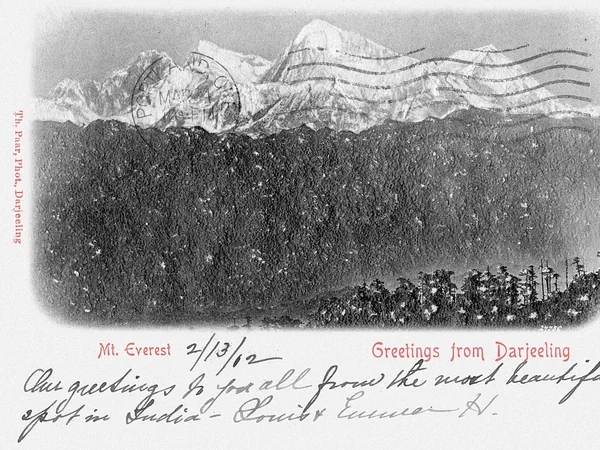 Th. Paar, Phot., Darjeeling
Mt. Everest 2/13/02
Greetings from Darjeeling
Our greetings to you all from the most beautiful
spot in India - Louis & Emma H.